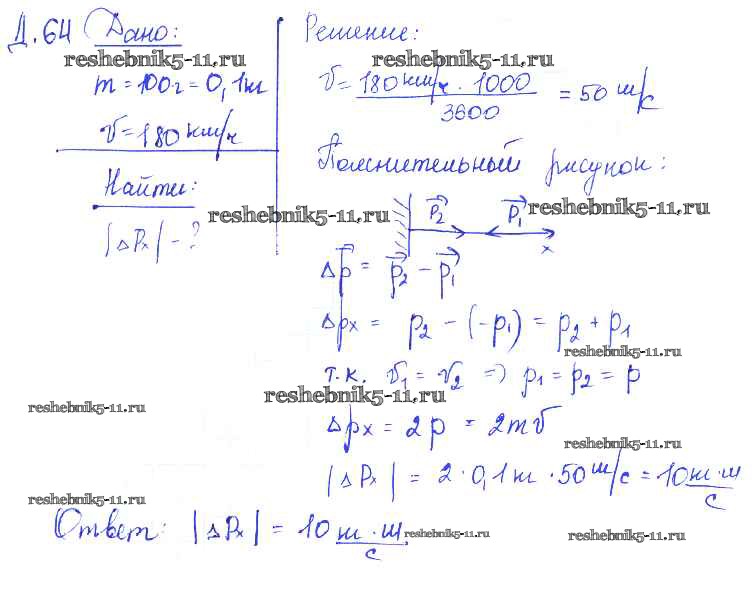 Д.64 Дано:
reshebnik5-11.ru
m = 100 г = 0,1 кг
v = 180 км/ч
Найти:
|Δpx| - ?
Решение:
reshebnik5-11.ru
v = 180 км/ч · 1000 / 3600 = 50 м/с
Пояснительный рисунок:
reshebnik5-11.ru
p₂ p₁ reshebnik5-11.ru
x
Δp = p₂ - p₁
Δpx = p₂ - (-p₁) = p₂ + p₁
reshebnik5-11.ru
т.к. v₁ = v₂ => p₁ = p₂ = p
reshebnik5-11.ru
reshebnik5-11.ru
Δpx = 2p = 2mv
reshebnik5-11.ru
|Δpx| = 2 · 0,1 кг · 50 м/с = 10 кг · м / с
reshebnik5-11.ru
Ответ: |Δpx| = 10 кг · м / с
reshebnik5-11.ru
reshebnik5-11.ru